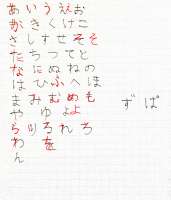 あいうええお
かきくけこ
さしすせそそ
たちつてと
なにぬねの
はひふへほ
まみむめも
やゆよよ
らりるれろ
わを
ん
ずぱ